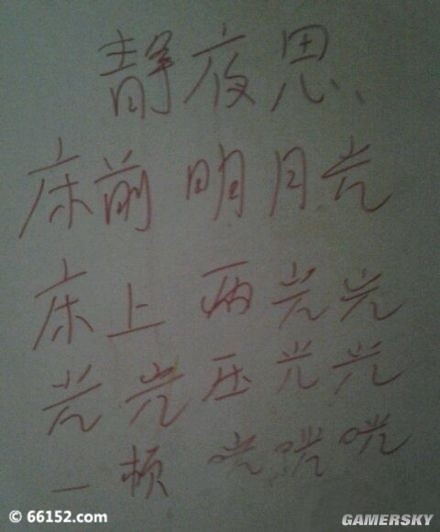 静夜思
床前明月光
床上两光光
光光压光光
一顿咣咣咣
© 66152.com
GAMERSKY